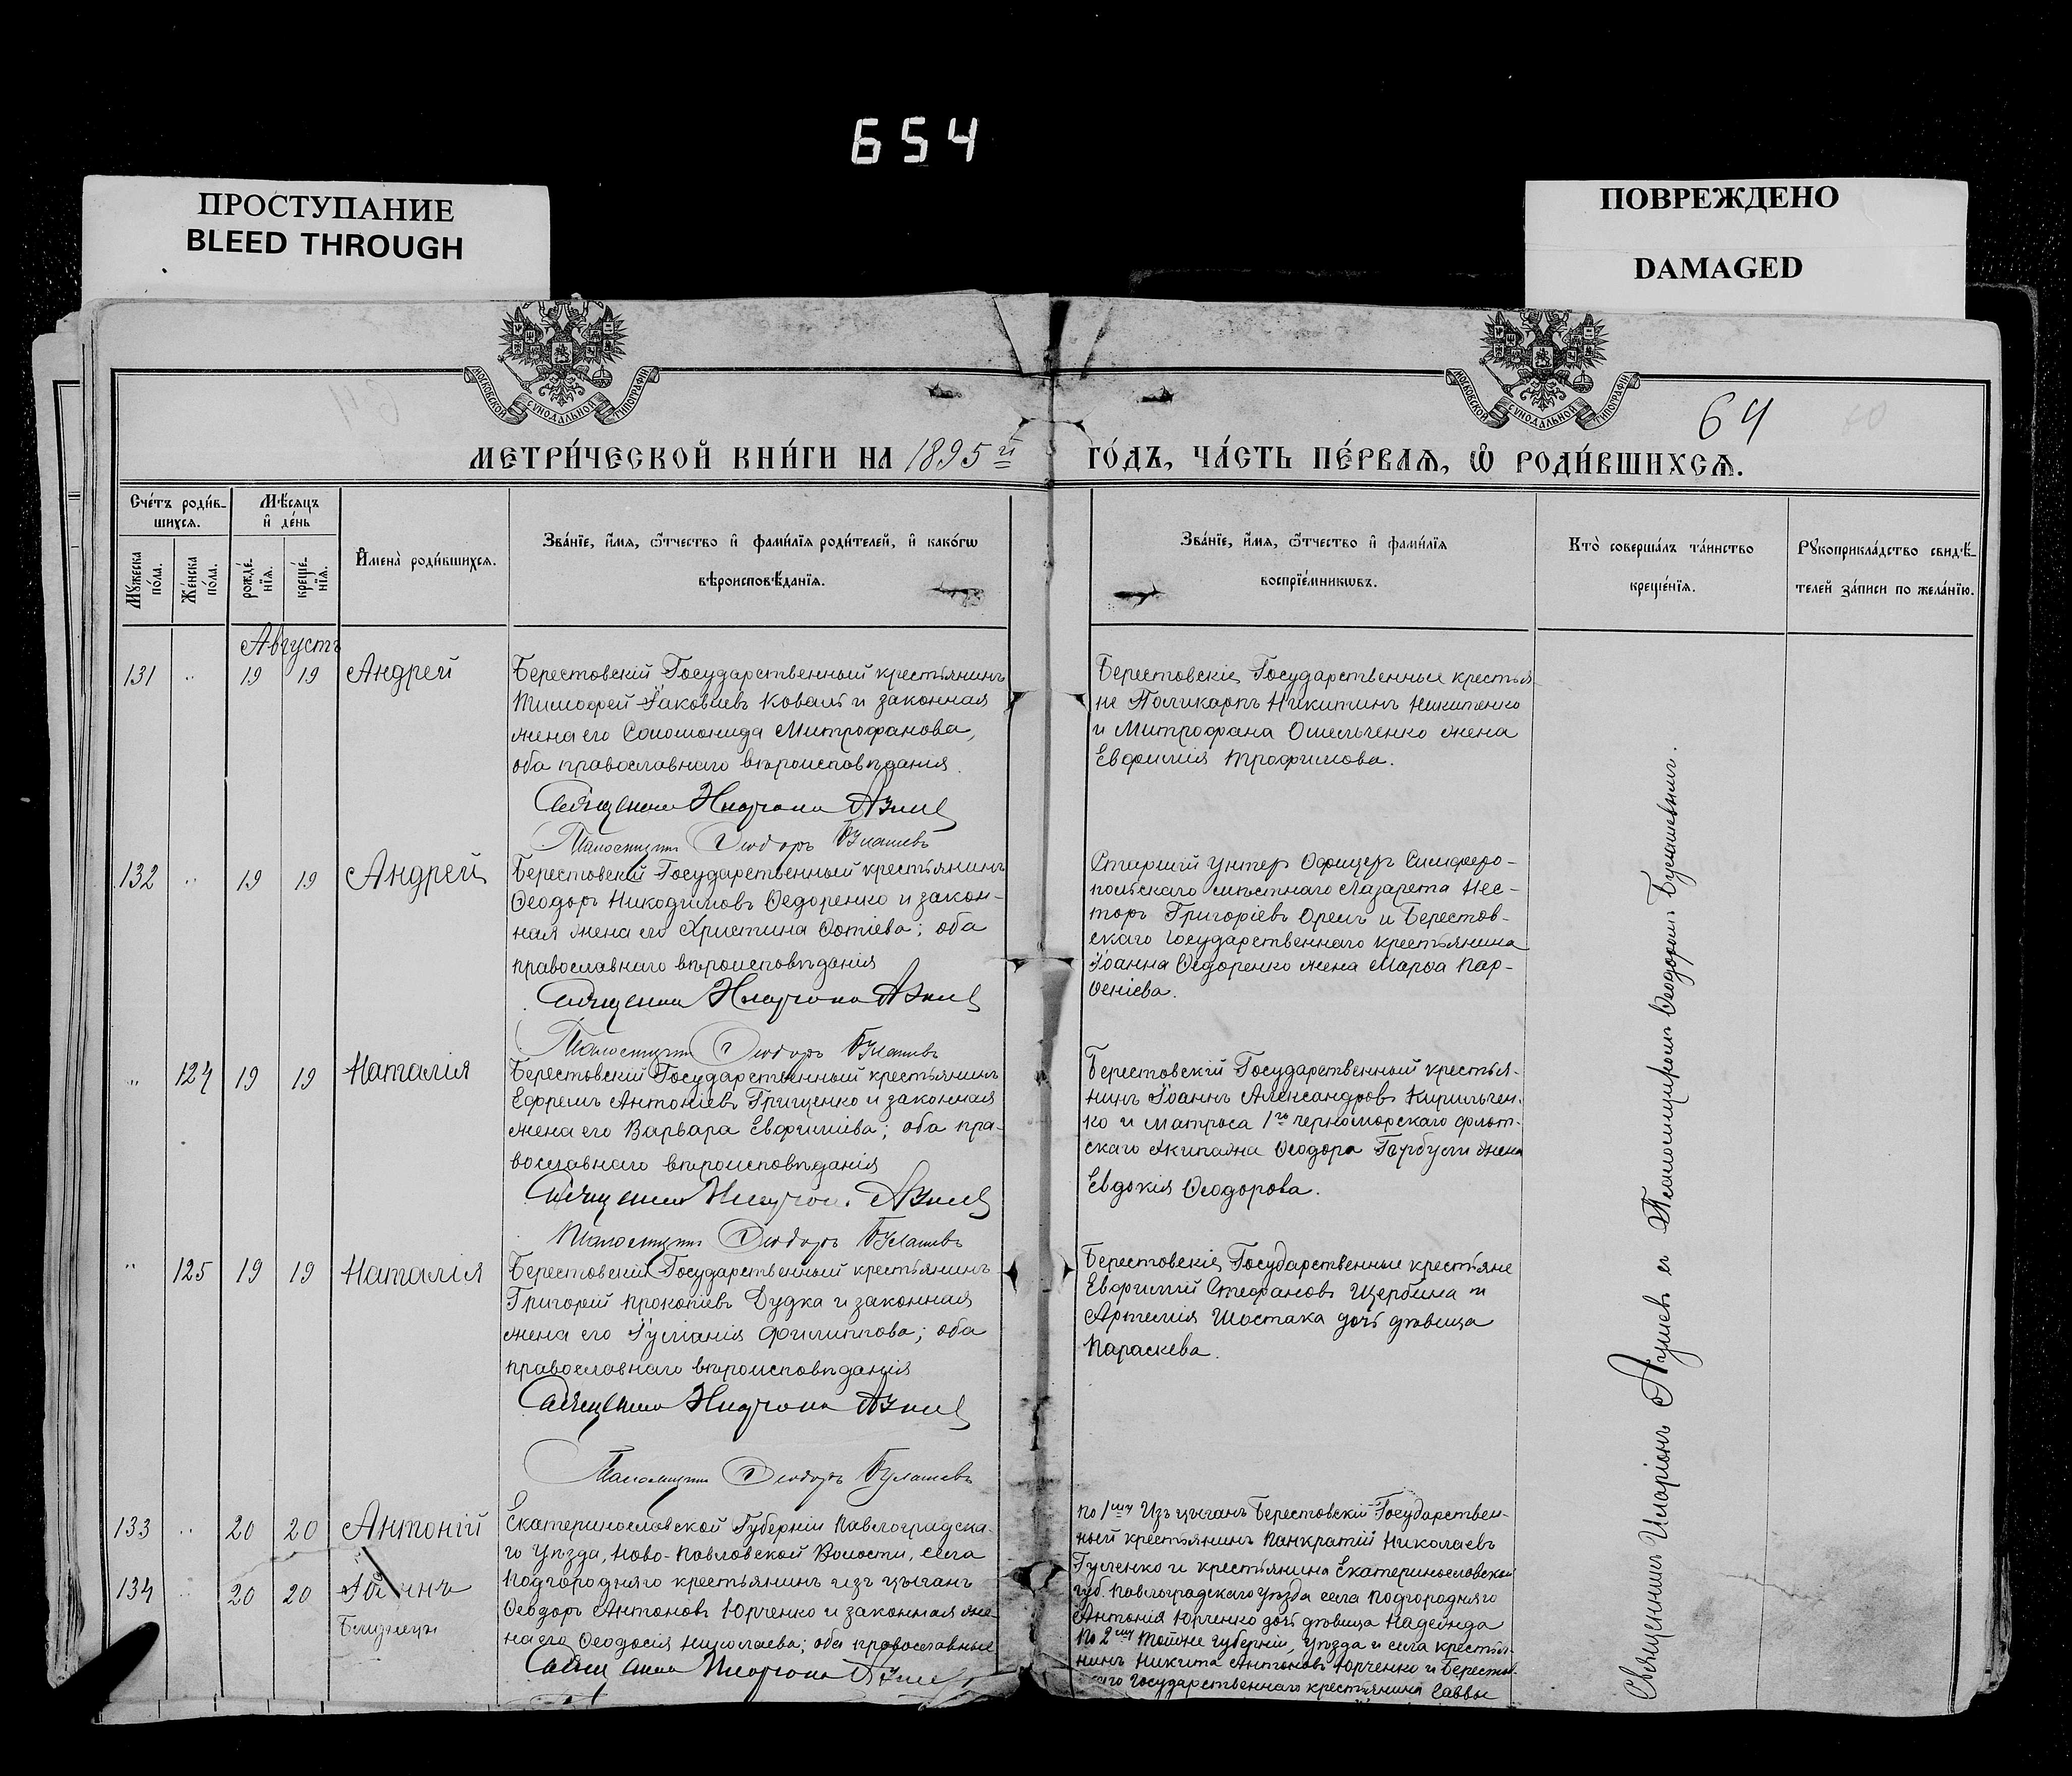 654
ПРОСТУПАНИЕ
BLEED THROUGH
ПОВРЕЖДЕНО
DAMAGED
МОСКОВСКОЙ СѴНОДАЛЬНОЙ ТИПОГРАФІИ
МОСКОВСКОЙ СѴНОДАЛЬНОЙ ТИПОГРАФІИ
64
МЕТРИ́ЧЕСКОЙ КНИ́ГИ НА 1895 й ГО́ДЪ, ЧА́СТЬ ПЕ́РВАѦ, Ѡ҆ РОДИ́ВШИХСѦ.
Сче́тъ роди́в-
шихсѧ.
Мꙋ́жеска по́ла.
Же́нска по́ла.
Мѣ́сѧцъ
и҆ де́нь
рожде́-
нїѧ.
креще́-
нїѧ.
И҆мена̀ роди́вшихсѧ.
Зва́нїе, и҆́мѧ, ѻ҆́тчество и҆ фами́лїѧ роди́телей, и҆ како́гѡ
вѣроисповѣ́данїѧ.
Зва́нїе, и҆́мѧ, ѻ҆́тчество и҆ фами́лїѧ
воспрїе́мникѡвъ.
Кто̀ соверша́лъ та́инство
креще́нїѧ.
Рꙋкоприкла́дство свидѣ́-
телей за́писи по жела́нїю.
Августъ
131 " 19 19 Андрей
Берестовскій Государственный крестьянинъ
Тимофей Іаковлевъ Коваль и законная
жена его Соломонида Митрофанова,
оба православнаго вѣроисповѣданія.
Священникъ Иларіонъ
Псаломщикъ Ѳеодоръ
Берестовскіе Государственные крестья-
не Поликарпъ Никитинъ Никитенко
и Митрофана Омельченко жена
Евфимія Трофимова.
132 " 19 19 Андрей
Берестовскій Государственный крестьянинъ
Ѳеодоръ Никодимовъ Ѳедоренко и закон-
ная жена его Христина Фотіева; оба
православнаго вѣроисповѣданія
Священникъ Иларіонъ
Псаломщикъ Ѳеодоръ
Старшій Унтер Офицеръ Симферо-
польскаго мѣстнаго Лазарета Нес-
торъ Григоріевъ Орелъ и Берестов-
скаго государственнаго крестьянина
Іоанна Ѳедоренко жена Марѳа Пар-
ѳеніева.
" 124 19 19 Наталія
Берестовскій Государственный крестьянинъ
Ефремъ Антоніевъ Грищенко и законная
жена его Варвара Евфиміева; оба пра-
вославнаго вѣроисповѣданія
Священникъ Иларіонъ
Псаломщикъ Ѳеодоръ
Берестовскій Государственный крестья-
нинъ Іоаннъ Александровъ Кирильчен-
ко и матроса 1го черноморскаго флот-
скаго экипажа Ѳеодора жена
Евдокія Ѳеодорова.
" 125 19 19 Наталія
Берестовскій Государственный крестьянинъ
Григорій Прокопіевъ Дудка и законная
жена его Іуліанія Филиппова; оба
православнаго вѣроисповѣданія
Священникъ Иларіонъ
Псаломщикъ Ѳеодоръ
Берестовскіе Государственные крестьяне
Евфимій Стефановъ Щербина и
Артемія Шостака дочь дѣвица
Параскева.
133 " 20 20 Антоній
134 " 20 20 Іоаннъ
Близнецы
Екатеринославской Губерніи Павлоградска-
го Уѣзда, Ново-Павловской Волости, села
Подгородняго крестьянинъ изъ цыганъ
Ѳеодоръ Антоновъ Юрченко и законная же-
на его Ѳеодосія Николаева; оба православные
Священникъ Иларіонъ
По 1му Изъ цыганъ Берестовскій Государствен-
ный крестьянинъ Панкратій Николаевъ
и крестьянина Екатеринославской
губ. Павлоградскаго уѣзда села Подгородняго
Антонія Юрченко дочь дѣвица Надежда
По 2му Тойже губерніи, уѣзда и села крестья-
нинъ Никита Антоновъ Юрченко и Берестов-
скаго Государственнаго крестьянина Саввы
Священникъ Иларіонъ съ Псаломщикомъ Ѳеодоромъ